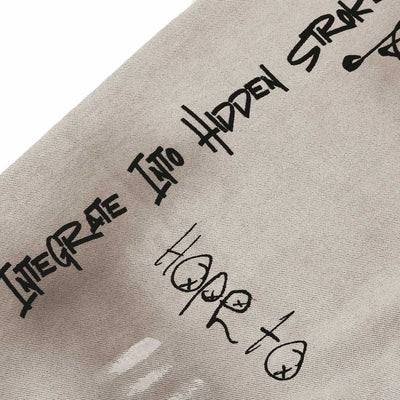 INTEGRATE INTO HIDDEN STROK
HOPR TO